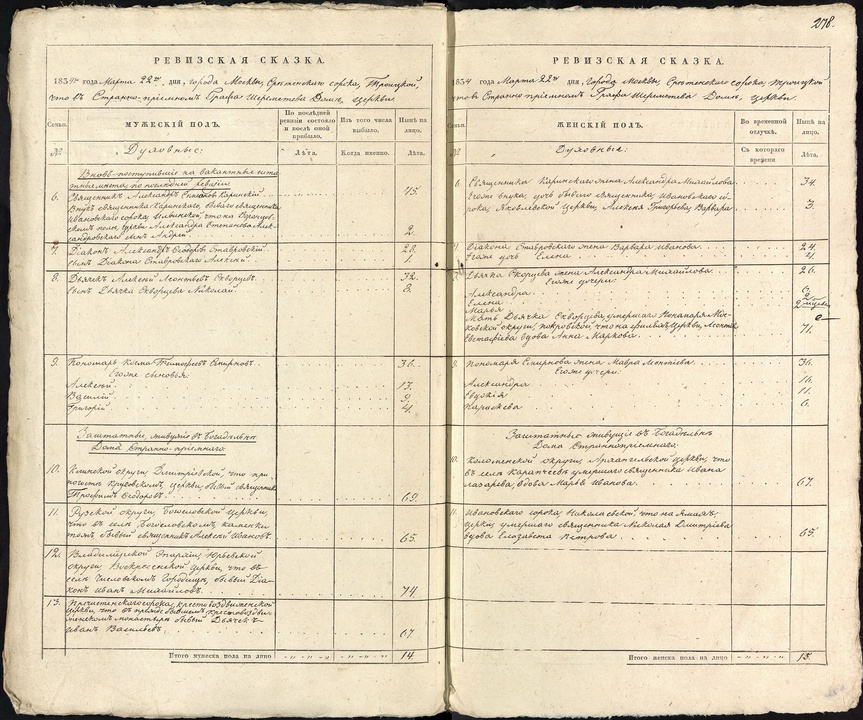 278.
РЕВИЗСКАЯ СКАЗКА.
1834го года Марта 22го дня, города Москвы, Срѣтенскаго сорока, Троицкой,
что въ Странно-пріемномъ Графа Шереметева Домѣ, церкви.
Семьи.
МУЖЕСКІЙ ПОЛЪ.
По послѣдней ревизіи состояло и послѣ оной прибыло.
Изъ того числа выбыло.
Нынѣ на лицо.
№
Духовные:
Лѣта.
Когда именно.
Лѣта.
Вновь-поступившіе на вакантныя
мѣста, по последней ревизіи
6. Священникъ Александръ Каринскій 45.
Внукъ священника Каринскаго, бывшаго священника
Ивановскаго сорока,
церкви Александра Стефанова
сынъ Андрей 2.
7. Діаконъ Александръ Ѳедоровъ Ставровскій 28.
сынъ Діакона Ставровскаго Алексей 1.
8. Дьячекъ Алексей Леонтьевъ Скворцевъ 32.
сынъ Дьячка Скворцева Николай 8.
9. Пономарь Козма Тимоѳеевъ Смирновъ 36.
Егоже сыновья:
Алексей 13.
Василій 9.
Григорій 4.
Заштатные, живущіе въ Богадельнѣ
Дома Странно-пріемнаго.
10. округи, Димитріевской, что при
погостѣ Круговскомъ, церкви, бывшій священникъ
Трофимъ Ѳедоровъ 69.
11. Рузской округи, Богословской церкви,
что въ селѣ Богословскомъ,
бывшій священникъ Алексей Ивановъ 65.
12. Владимірской Епархіи, Юрьевской
округи, Воскресенской церкви, что въ
селѣ Городищѣ, бывшій Діа-
конъ Иванъ Михайловъ 74.
13. Пречистенскаго сорока, крестовоздвиженской
церкви, что въ прежде бывшемъ Крестовоздви-
женскомъ монастырѣ бывшій Дьячекъ
Иванъ Васильевъ 67.
Итого мужеска пола на лицо 14.
РЕВИЗСКАЯ СКАЗКА.
1834 года Марта 22го дня, Города Москвы, Срѣтенскаго сорока, Троицкой
что въ Странно-пріемномъ Графа Шереметева Домѣ, церкви.
Семьи.
ЖЕНСКІЙ ПОЛЪ.
Во временной отлучкѣ.
Нынѣ на лицо.
№
Духовные:
Съ котораго времени
Лѣта.
6. Священника Каринскаго жена Александра Михайлова 34.
Егоже внука, дочь бывшаго священника Ивановскаго со-
рока, Яковлевской церкви, Алексея Григорьева, Варвара 3.
7. Діакона Ставровскаго жена Варвара Иванова 24.
Егоже дочь Елена
Дьячка Скворцева жена Александра Михайлова 26.
Егоже дочери:
Александра 6.
Елена
Марья
Мать Дьячка Скворцева, умершаго Пономаря Мос-
ковской округи, Покровской, что на Филяхъ Церкви, Леонтия
Евстафіева вдова Анна Маркова. 71.
9. Пономаря Смирнова жена Мавра 36.
Егоже дочери:
Александра 16.
Евдокія 11.
Параскева 6.
Заштатные живущіе въ Богадельнѣ
Дома Страннопріемнаго:
10. Коломенской округи, Архангельской церкви, что
въ селѣ умершаго священника Ивана
Лазарева, вдова Марья Иванова. 67.
11. Ивановскаго сорока, Николаевской, что на Ямахъ,
церкви, умершаго священника Николая Димитріева
вдова Елизавета Петрова 65.
Итого женска пола на лицо 15.